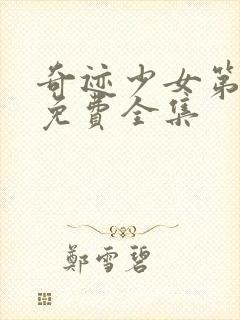 奇迹少女第
免費全集
鄭雪碧